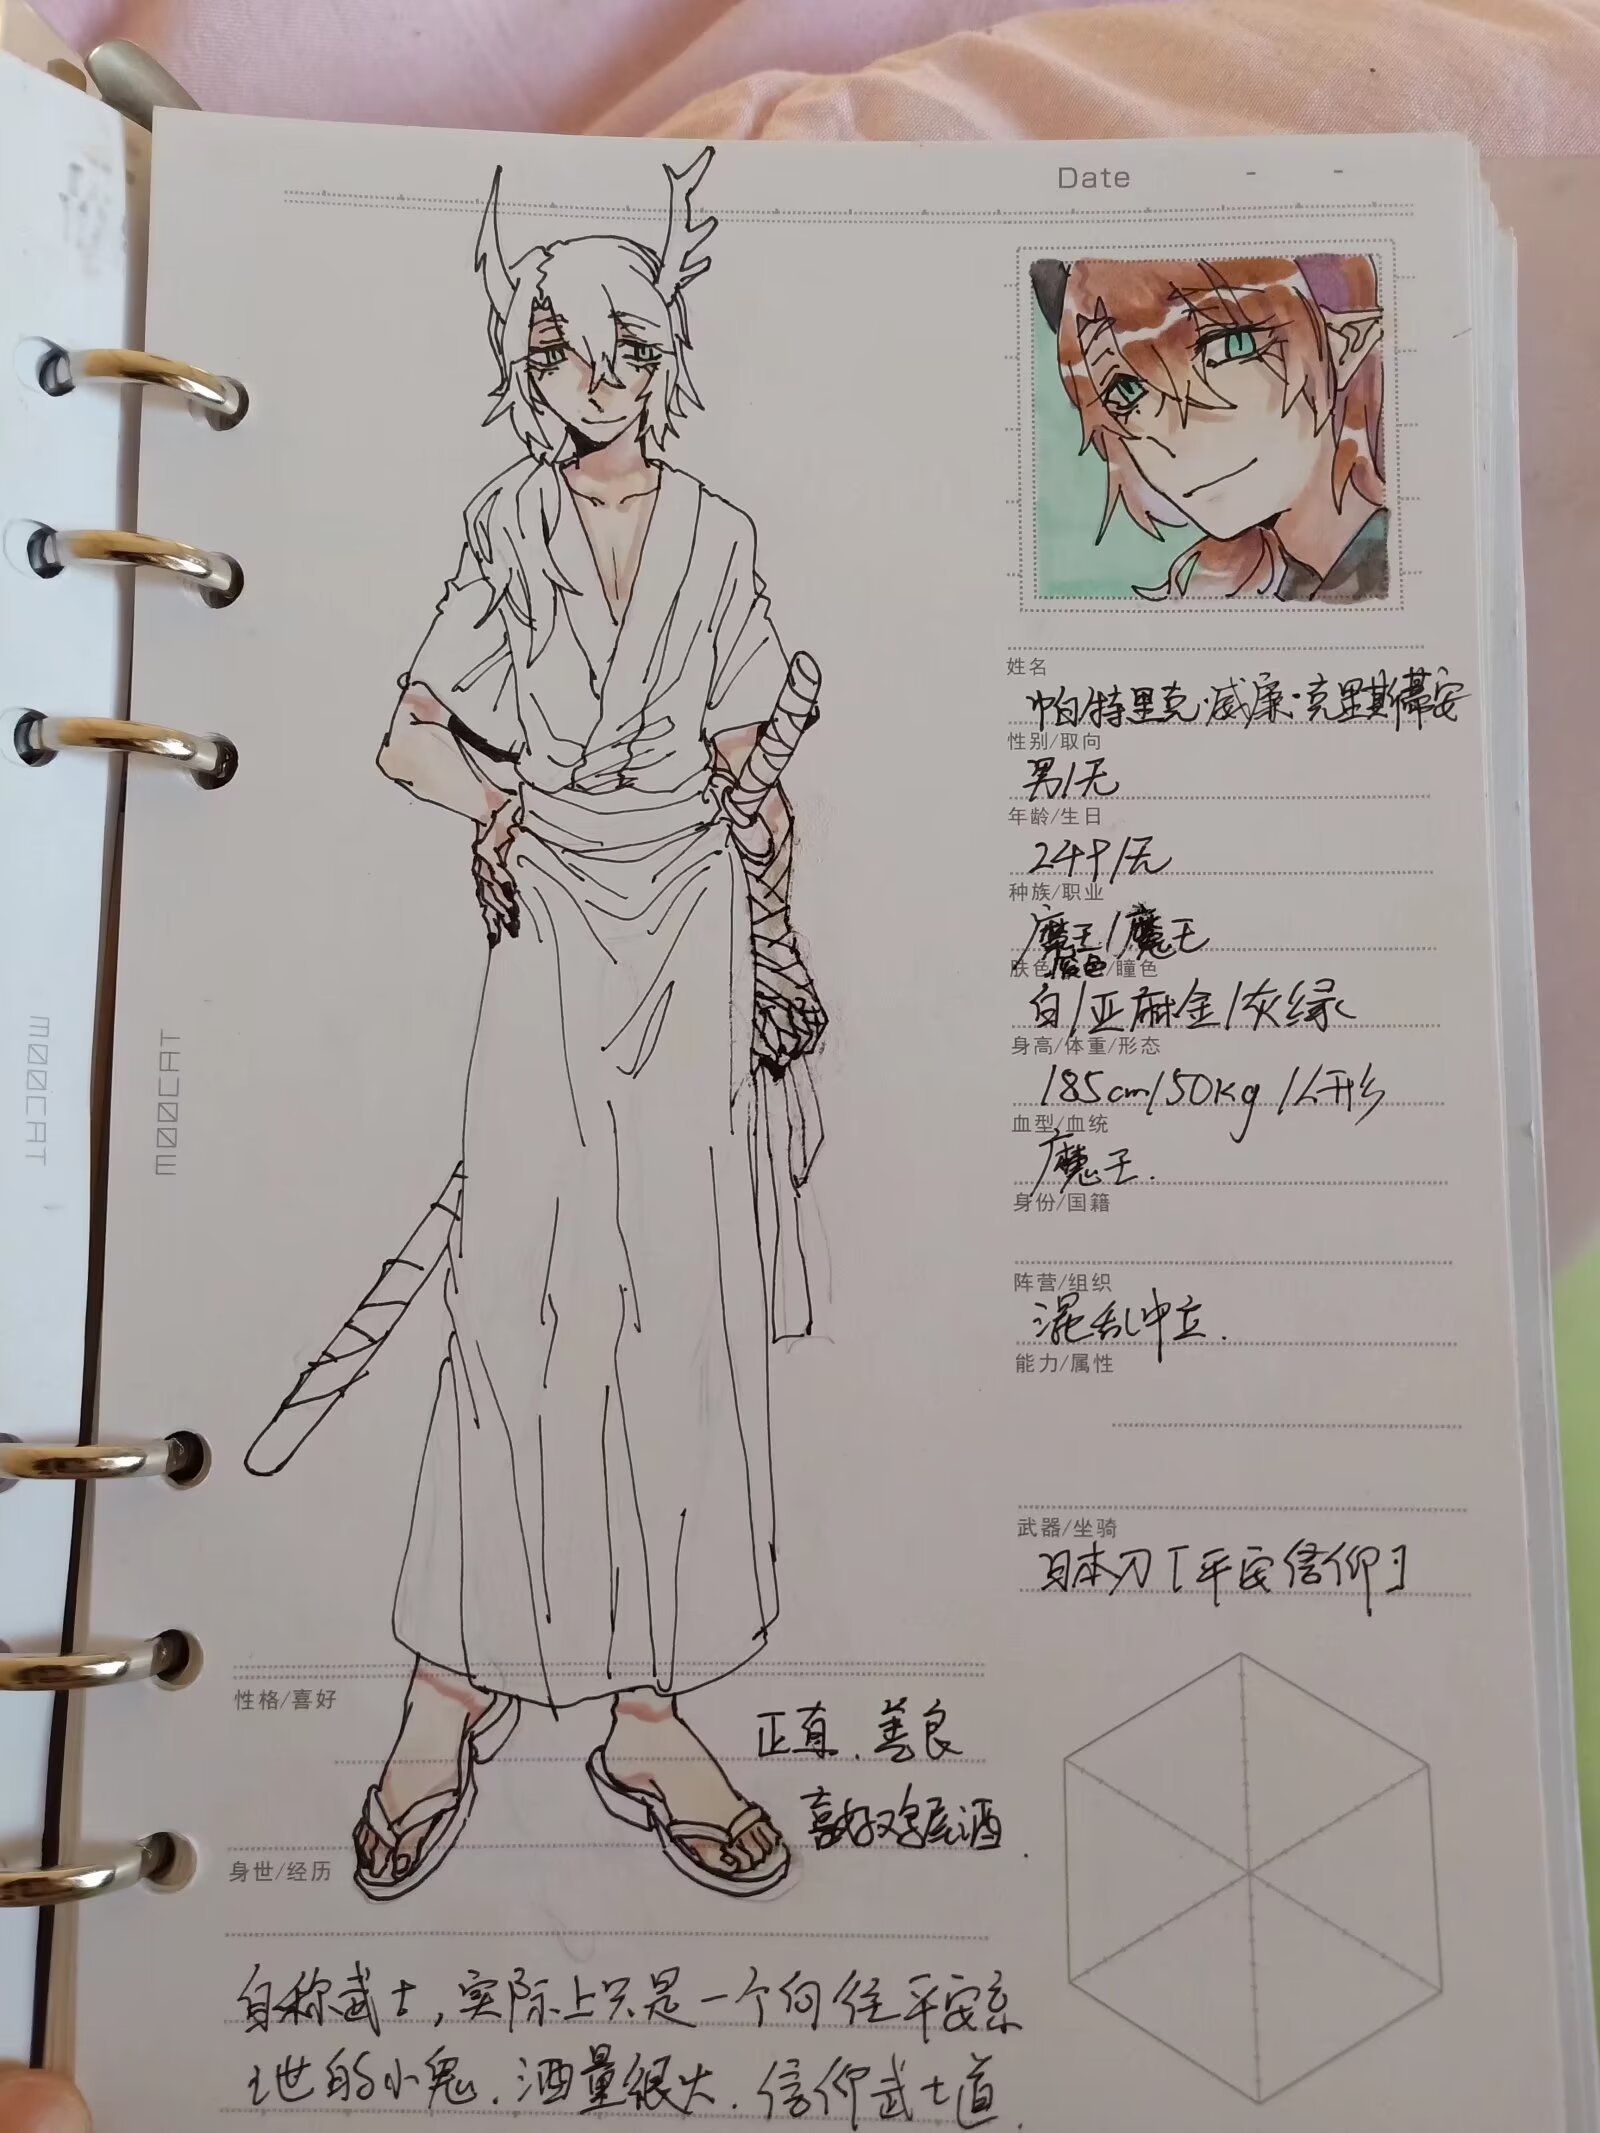 Date - -
姓名
帕特里克·威廉·克里斯蒂安
性别/取向
男/无
年龄/生日
249/无
种族/职业
魔王/魔王
肤色/发色/瞳色
白/亚麻金/灰绿
身高/体重/形态
185cm/50kg/人形
血型/血统
魔王.
身份/国籍
阵营/组织
混乱中立.
能力/属性
武器/坐骑
日本刀「平安信仰」
性格/喜好
正直.善良
喜好鸡尾酒.
身世/经历
自称武士,实际上只是一个向往平安京
世的小鬼.酒量很大.信仰武士道.
MOOCAT
MOOCAT